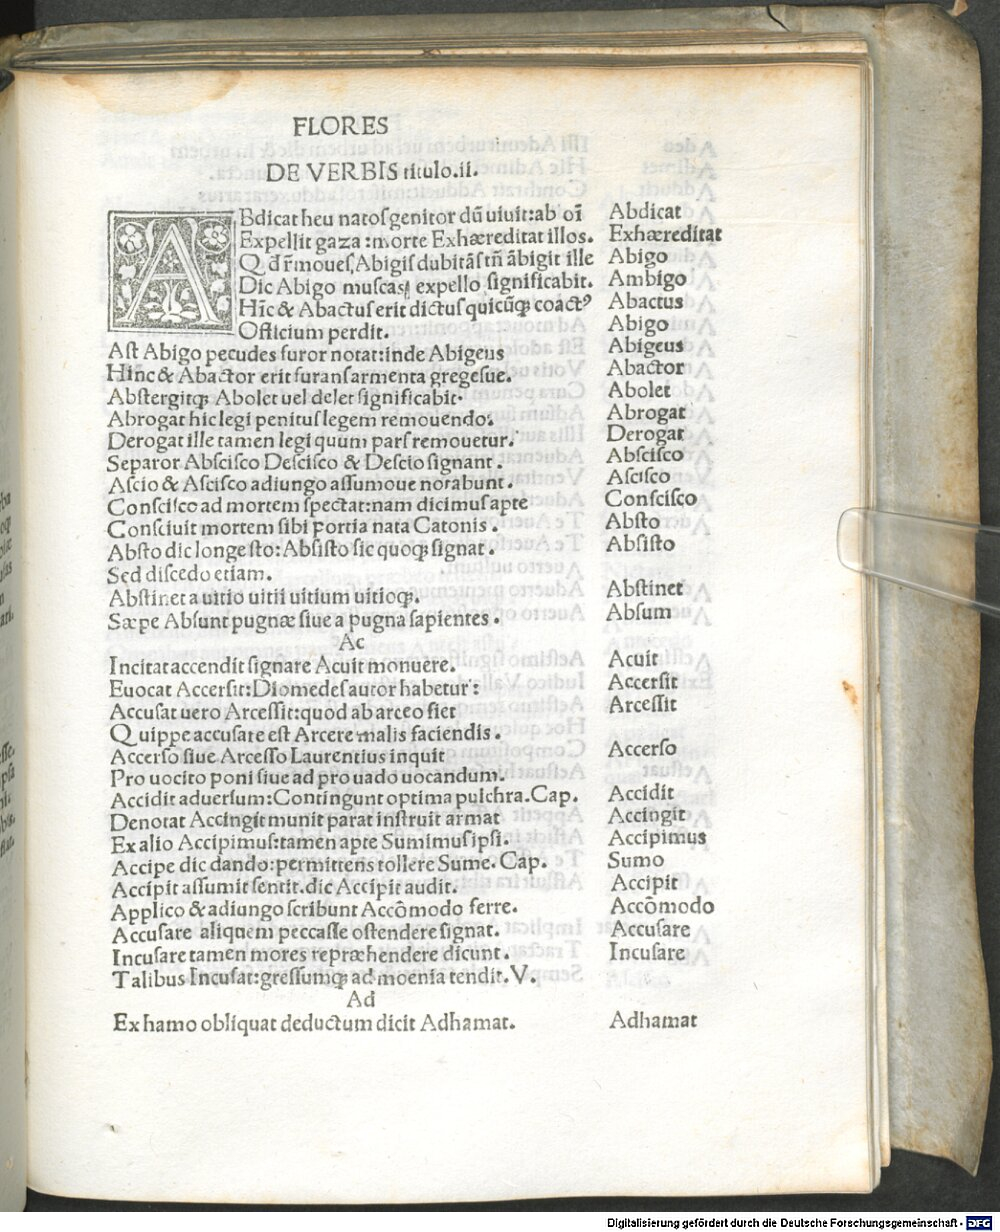 FLORES
DE VERBIS titulo.ii.
ABdicat heu natoſ genitor dū uiuit:ab oī Abdicat
Expellit gaza:morte Exhæreditat illos. Exhæreditat
Q d r̄moueſ, Abigiſ dubitāſ tn̄ ābigit ille Abigo
Dic Abigo muſcaſ expello ſignificabit. Ambigo
Hīc & Abactuſ erit dictuſ quicūqꝫ coactꝰ Abactus
Officium perdit. Abigo
Aſt Abigo pecudes furor notat:inde Abigeus Abigeus
Hinc & Abactor erit furanſ armenta gregeſue. Abactor
Abſtergitqꝫ Abolet uel delet ſignificabit. Abolet
Abrogat hic legi penituſ legem remouendo. Abrogat
Derogat ille tamen legi quum parſ remouetur. Derogat
Separor Abſciſco Deſciſco & Deſcio ſignant. Abſciſco
Aſcio & Aſciſco adiungo aſſumoue norabunt. Aſciſco
Conſciſco ad mortem ſpectat:nam dicimuſ apte Conſciſco
Conſciuit mortem ſibi Portia nata Catonis. Abſto
Abſto dic longe ſto:Abſiſto ſic quoqꝫ ſignat. Abſiſto
Sed diſcedo etiam.
Abſtinet a uitio uitii uitium uitioqꝫ. Abſtinet
Sæpe Abſunt pugnæ ſiue a pugna ſapientes. Abſum
Ac
Incitat accendit ſignare Acuit monuere. Acuit
Euocat Accerſit:Diomedeſ autor habetur: Accerſit
Accuſat uero Arceſſit:quod ab arceo fiet Arceſſit
Quippe accuſare eſt Arcere malis faciendis.
Accerſo ſiue Arceſſo Laurentius inquit Accerſo
Pro uocito poni ſiue ad pro uado uocandum.
Accidit aduerſum:Contingunt optima pulchra.Cap. Accidit
Denotat Accingit munit parat inſtruit armat Accingit
Ex alio Accipimuſ:tamen apte Sumimuſ ipſi. Accipimus
Accipe dic dando:permittens tollere Sume. Cap. Sumo
Accipit aſſumit ſentit.dic Accipit audit. Accipit
Applico & adiungo ſcribunt Accōmodo ferre. Accōmodo
Accuſare aliquem peccaſſe oſtendere ſignat. Accuſare
Incuſare tamen mores repræhendere dicunt. Incuſare
Talibus Incuſat:greſſumqꝫ ad moenia tendit. V.
Ad
Ex hamo obliquat deductum dicit Adhamat. Adhamat
Digitalisierung gefördert durch die Deutsche Forschungsgemeinschaft - DFG